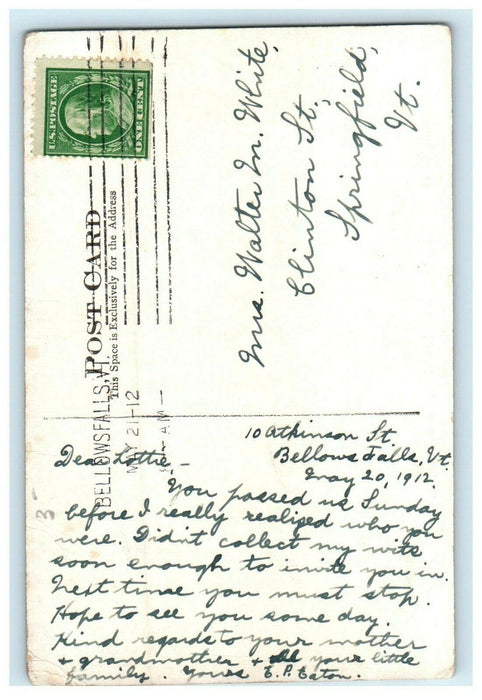 U.S. POSTAGE
ONE CENT
POST CARD
This Space is Exclusively for the Address
BELLOWS FALLS, VT.
MAY 21-12
AM
Mrs. Walter M. White,
Clinton St.,
Springfield,
Vt.
10 Atkinson St.
Bellows Falls, Vt.
May 20, 1912.
Dear Lottie
You passed us Sunday
before I really realized who you
were. Didn't collect my wits
soon enough to invite you in.
Next time you must stop.
Hope to see you some day.
Kind regards to your mother
+ grandmother + all your little
family. Yours E. P. Eaton.
3-